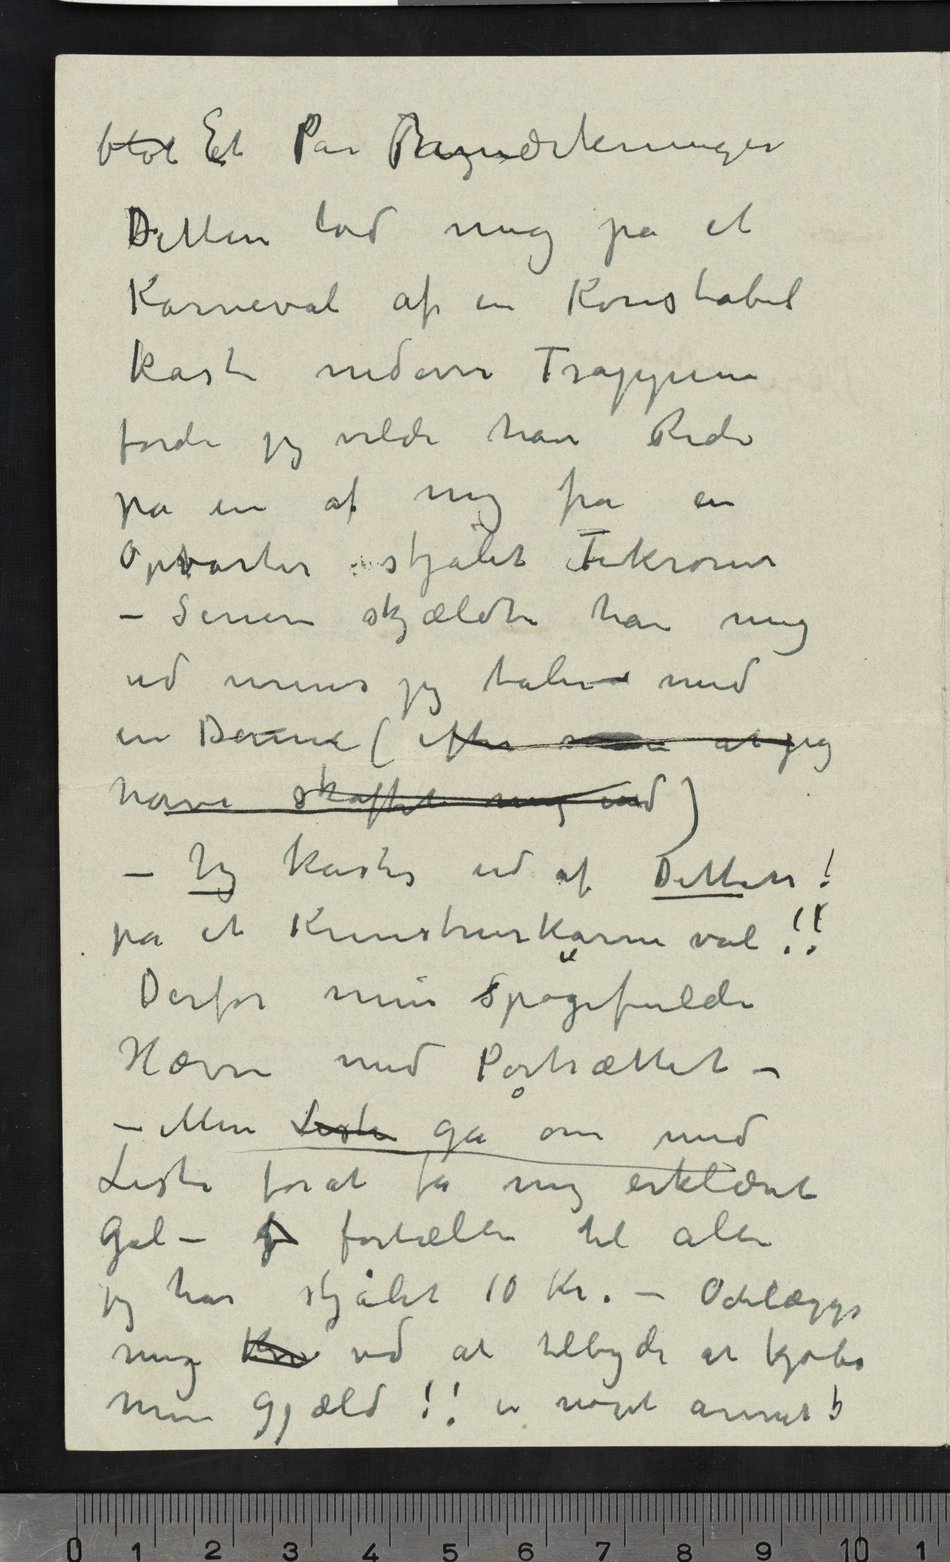 blot Et Par Bemærkninger
Ditten lod mig på et
Karneval af en Konstabel
kaste nedover Trappene
fordi jeg vilde have Rede
på en af mig fra en
Opvarter stjålet Tikroner
– Senere skjældte han mig
ud mens jeg taler med
en Dame (efter at jeg
have skaffet mig ind)
– Jeg kastes ud af Ditten!
på et Kunstnerkarneval!!
Derfor min spøgefulde
Hævn med Portrættet –
– Men Liste gå om med
Liste forat få mig erklæret
gal – fortælle til alle
jeg har stjålet 10 Kr. – Ødelægge
mig ved at tilbyde at kjøbe
min Gjæld!! er noget annet!
0 1 2 3 4 5 6 7 8 9 10 1